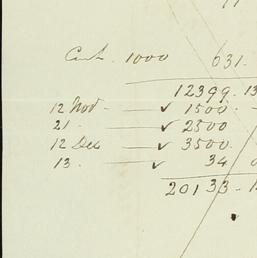 Cash . 1000 631.
12399. 13
12 Nov - — ✓ 1500. -
21 . — ✓ 2500
12 Dec — ✓ 3500.
13 . ✓ 34 0
20133 - 1